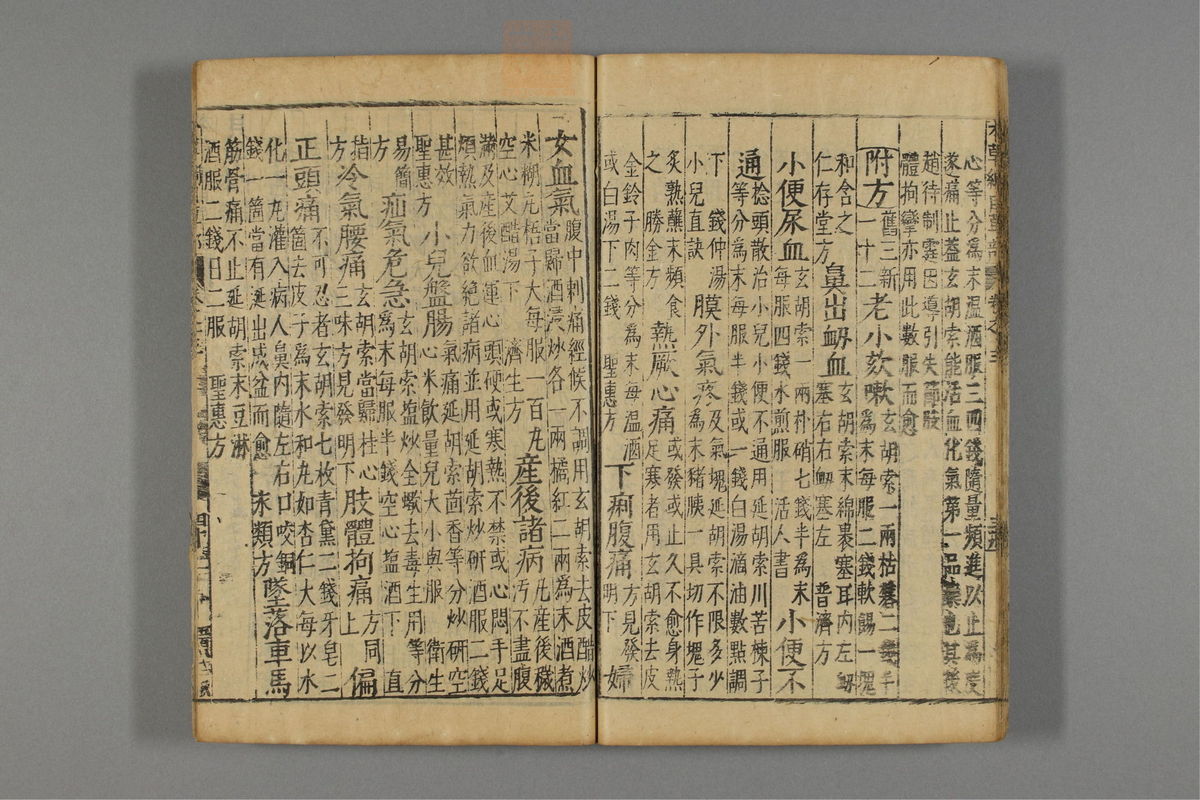 心等分為末溫酒服三四錢隨量頻進以止為度
遂痛止蓋玄胡索能活血化氣第一品藥也其後
趙待制霆因導引失節肢
體拘攣亦用此數服而愈
附方舊三新一十二老小欬嗽玄胡索一兩枯礬二錢半為末每服二錢軟餳一塊
和含之仁存堂方鼻出衂血玄胡索末綿裹塞耳內左衂塞右右衂塞左 普濟方
小便尿血玄胡索一兩朴硝七錢半為末每服四錢水煎服 活人書 小便不
通捻頭散治小兒小便不通用延胡索川苦楝子等分為末每服半錢或一錢白湯滴油數點調
下 錢仲湯小兒直訣膜外氣疼及氣塊延胡索不限多少為末猪胰一具切作塊子
炙熟蘸末頻食之 勝金方熱厥心痛或發或止久不愈身熱足寒者用玄胡索去皮
金鈴子肉等分為末每溫酒或白湯下二錢 聖惠方下痢腹痛方見發明下婦
女血氣腹中刺痛經候不調用玄胡索去皮醋炒當歸酒浸炒各一兩橘紅二兩為末酒煮
米糊丸梧子大每服一百丸空心艾醋湯下 濟生方產後諸病凡產後穢汚不盡腹
滿及產後血運心頭硬或寒熱不禁或心悶手足煩熱氣力欲絕諸病並用延胡索炒研酒服二錢
甚效 聖惠方小兒盤腸氣痛延胡索茴香等分炒研空心米飲量兒大小與服 衛生
易簡方疝氣危急玄胡索塩炒全蠍去毒生用等分為末每服半錢空心塩酒下 直
指方冷氣腰痛玄胡索當歸桂心三味方見發明下肢體拘痛方同上偏
正頭痛不可忍者玄胡索七枚青黛二錢牙皂二箇去皮子為末水和丸如杏仁大每以水
化一丸灌入病人鼻內隨左右口咬銅錢一箇當有涎出成盆而愈 末類方墜落車馬
筋骨痛不止延胡索末豆淋酒服二錢日二服 聖惠方